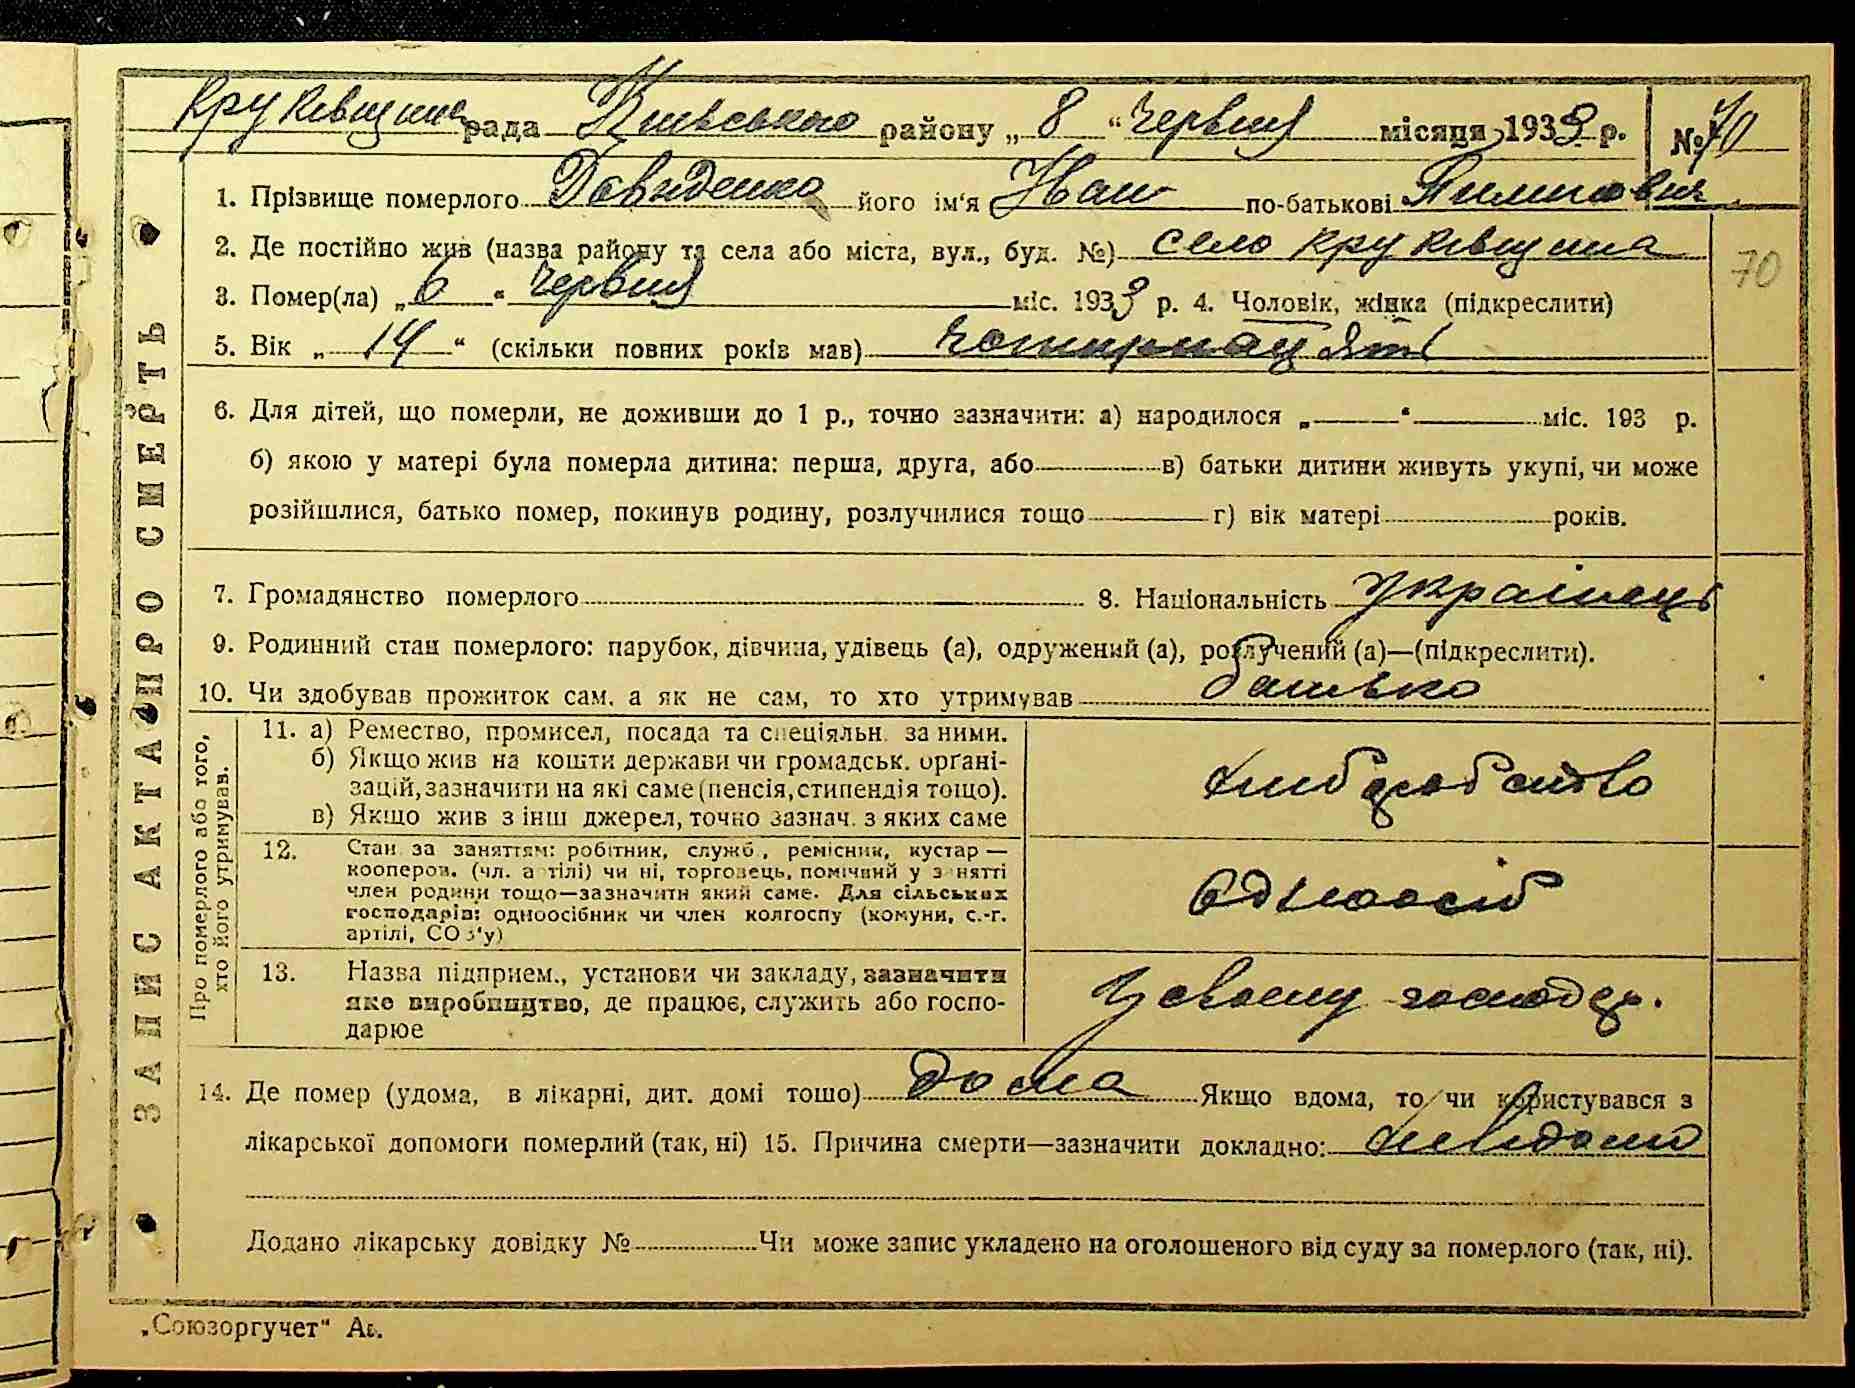 Круківщина рада Київського району „ 8 “ червня місяця 1933 р. № 70
1. Прізвище померлого Давиденко його ім‘я Иван по-батькові Пилипович
2. Де постійно жив (назва району та села або міста, вул., буд. №) село Круківщина
70
3. Помер(ла) „ 6 “ червня міс. 1933 р. 4. Чоловік, жінка (підкреслити)
5. Вік „ 14 “ (скільки повних років мав) чотирнацять
6. Для дітей, що померли, не доживши до 1 р., точно зазначити: а) народилося „ “ міс. 193 р.
б) якою у матері була померла дитина: перша, друга, або в) батьки дитини живуть укупі, чи може
розійшлися, батько помер, покинув родину, розлучилися тощо г) вік матері років.
7. Громадянство померлого 8. Національність українець
9. Родинний стан померлого: парубок, дівчина, удівець (а), одружений (а), розлучений (а)—(підкреслити).
10. Чи здобував прожиток сам, а як не сам, то хто утримував батько
11. а) Ремество, промисел, посада та спеціяльн. за ними.
б) Якщо жив на кошти держави чи громадськ. орґані-
зацій, зазначити на які саме (пенсія, стипендія тощо).
в) Якщо жив з інш джерел, точно зазнач. з яких саме
хліборобство
12. Стан за заняттям: робітник, служб., ремісник, кустар —
кооперов. (чл. артілі) чи ні, торговець, помічний у занятті
член родини тощо—зазначити який саме. Для сільських
господарів: одноосібник чи член колгоспу (комуни, с.-г.
артілі, СОЗ'у)
Одноосіб
13. Назва підприєм., установи чи закладу, зазначити
яке виробництво, де працює, служить або госпо-
дарює
У своему господар.
14. Де помер (удома, в лікарні, дит. домі тощо) дома Якщо вдома, то чи користувався з
лікарської допомоги померлий (так, ні) 15. Причина смерти—зазначити докладно: невідомо
Додано лікарську довідку № Чи може запис укладено на оголошеного від суду за померлого (так, ні).
ЗАПИС АКТА ПРО СМЕРТЬ
Про померлого або того,
хто його утримував.
„Союзоргучет“